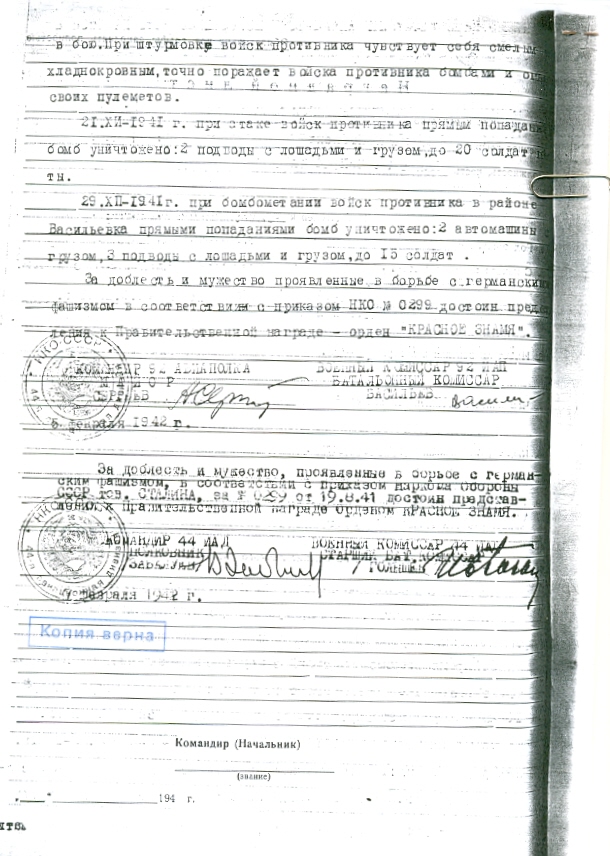 в бою.При штурмовке войск противника чувствует себя смелым
хладнокровным,точно поражает войска противника бомбами и
своих пулеметов.
21.XII-1941 г. при атаке войск противника прямым
бомб уничтожено:2 подводы с лошадьми и грузом,до 20 солдат
ты.
29.XII-1941г. при бомбометании войск противника в районе
Васильевка прямыми попаданиями бомб уничтожено:2 автомашины
грузом,3 подводы с лошадьми и грузом,до 15 солдат .
За доблесть и мужество проявленные в борьбе с германским
фашизмом в соответствии с приказом НКО № 0299 достоин
ления к Правительственной награде – орден "КРАСНОЕ ЗНАМЯ".
НКО-СССР
КОМАНДИР 92 АВИАПОЛКА
ВОЕННЫЙ КОМИССАР 92 ИАП
МАЙОР
БАТАЛЬОННЫЙ КОМИССАР
ВАСИЛЬЕВ
февраля 1942 г.
За доблесть и мужество, проявленные в борьбе с герман-
ским фашизмом, в соответствии с приказом Наркома Обороны
СССР тов. СТАЛИНА, за № 0299 от 19.8.41 достоин представ-
ления к правительственной награде орденом КРАСНОЕ ЗНАМЯ.
НКО
КОМАНДИР 44 ИАД
ВОЕННЫЙ КОМИССАР 44 ИАД
ПОЛКОВНИК
СТАРШИЙ БАТ.КОМИССАР
ЗАБАЛУЕВ
февраля 1942 г.
Копия верна
Командир (Начальник)
(звание)
„ " 194 г.